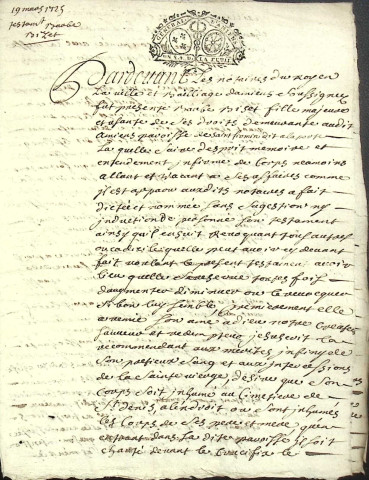 19 mars 1725
testamt Barbe
Bizet
Pardevant les notaires du Roy en
La ville et Bailliage damiens soussignez
fut presente Barbe Bizet fille majeure
et usante de ses droits demeurante audit
amiens paroisse de saint firmin
La quelle saine desprit memoire et
entendement infirme de Corps neamoins
allant et Vacant a ses affaires comme
il est apparu auxdits notaires a fait
dicté et nommé sans sugestion ny
induction de personne son testament
ainsy quil ensuit Revoquant tous autres
ou codicilles quelle peut avoir cy devant
fait voulant le present testament avoir
lieu quelle se reserve toutes fois
daugmenter diminuer ou le revocquer
si bon luy semble premierement elle
a remis son ame a dieu notre Createur
sauveur et redempteur jesus crist la
recommendant aux merites infiny de
son pretieux sang et aux intercessions
de la sainte vierge desire que son
Corps soit inhumé au Cimetiere de
St denis a lendroit ou sont inhumés
les Corps de ses pere et mere quen
entrant dans La dite paroisse il soit
chanté devant le crucifix le